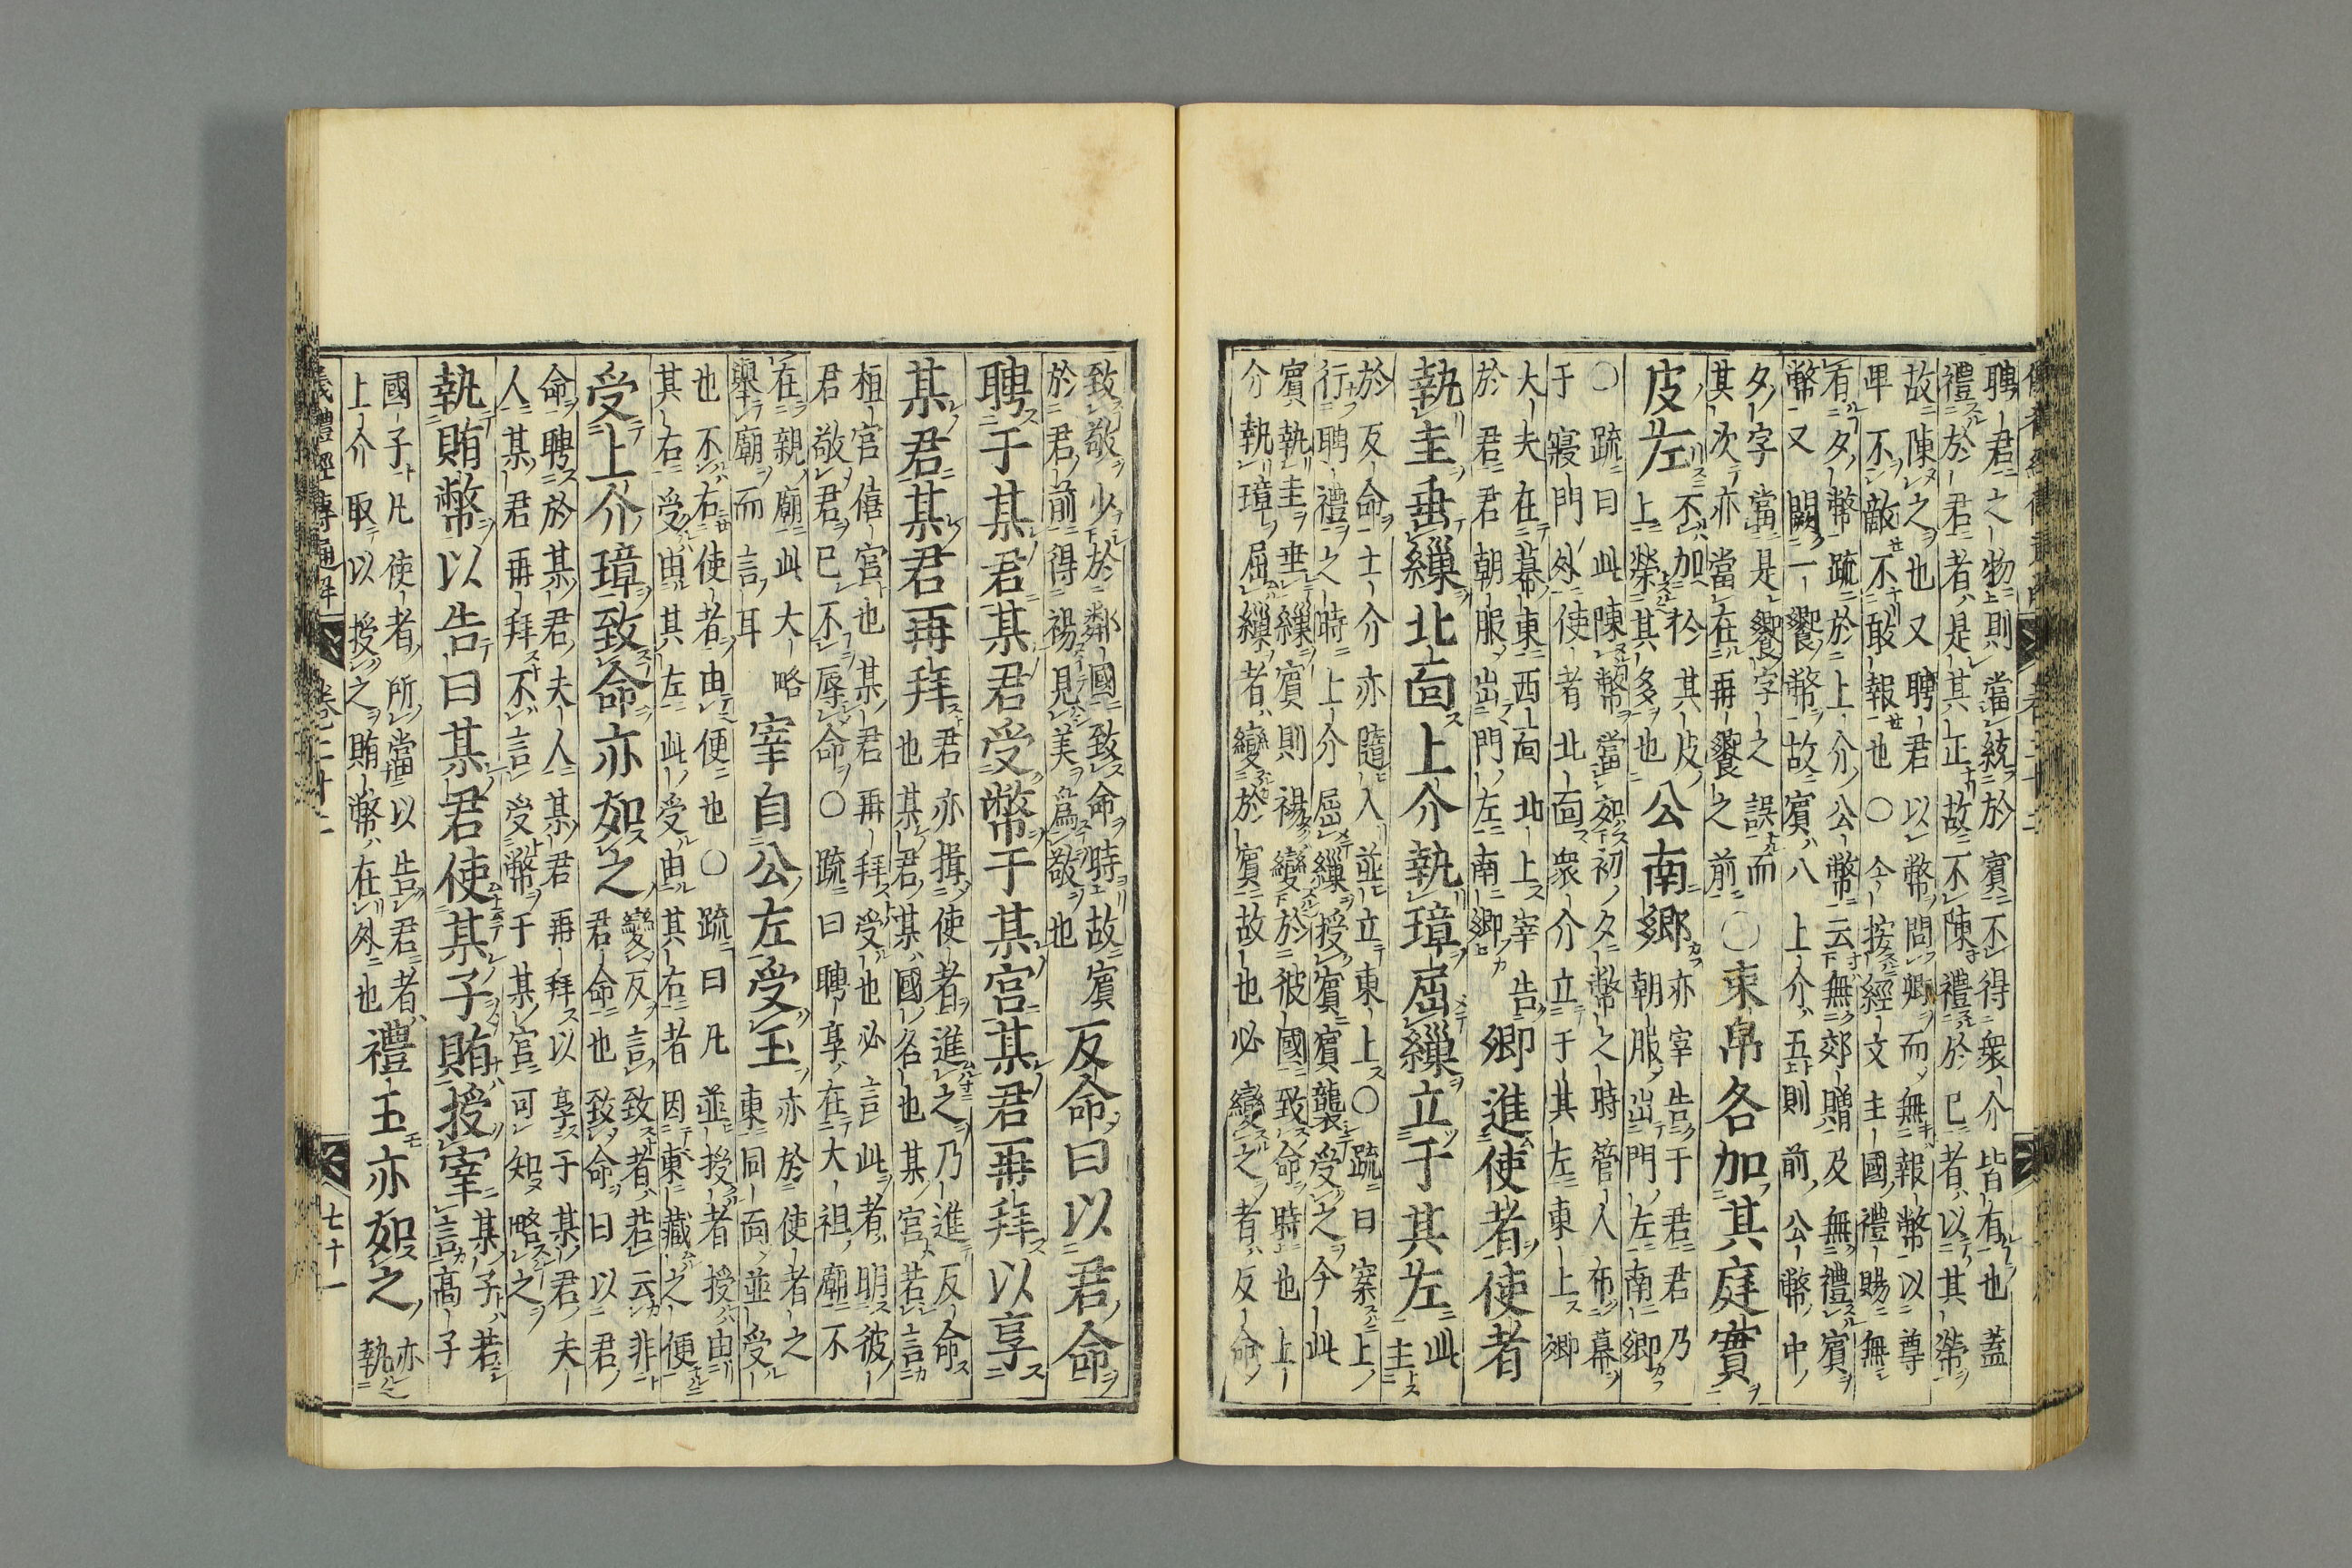 聘君之物則當統於賓不得衆介皆有也蓋
禮於君者是其正故不陳禮於己者以其榮
故陳之也又聘君以幣問卿而無報幣以尊
卑不敵不敢報也○今按經文主國禮賜無
有夕幣䟽於上介公幣云無郊贈及無禮賓
幣又闕一饗幣故賓八上介五則前公幣中
夕字當是饗字之誤而
其次亦當在再饗之前○
束帛各加其庭實
皮左
不加於其皮
上榮其多也
公南鄉
亦宰告于君君乃
朝服出門左南鄉
○䟽曰此陳幣當如初夕幣之時管人布幕
于寢門外使者北面衆介立于其左東上卿
大夫在幕東西面北上宰告
於君君朝服出門左南鄉
卿進使者使者
執圭垂繅北面上介執璋屈繅立于其左
此
主
於反命士介亦隨入並立東上○䟽曰案上
行聘禮之時上介屈繅授賓賓襲受之今此
賓執圭垂繅賓則裼變於彼國致命時也上
介執璋屈繅者變於賓故也必變之者反命
致敬少於鄰國致命時故賓
於君前得裼見美爲敬也
反命曰以君命
聘于某君某君受幣于某宮某君再拜以享
某君某君再拜
君亦揖使者進之乃進反命
也某君某國名也某宮若言
桓宮僖宮也某君再拜受也必言此者明彼
君敬君己不辱命○䟽曰聘享在大祖廟不
在親廟此大略
舉廟而言耳
宰自公左受玉
亦於使者之
東同面並受
也不右使者由便也○䟽曰凡並授者授由
其右受由其左此受由其右者因東藏之便
受上介璋致命亦如之
變反言致者若云非
君命也致命曰以君
命聘於某君夫人某君再拜以享于某君夫
人某君再拜不言受幣于某官可知略之
執賄幣以告曰某君使某子賄授宰
某子若
言高子
國子凡使者所當以告君者
上介取以授之賄幣在外也
禮玉亦如之
亦
執
儀禮經傳通解 卷二十二 七十一